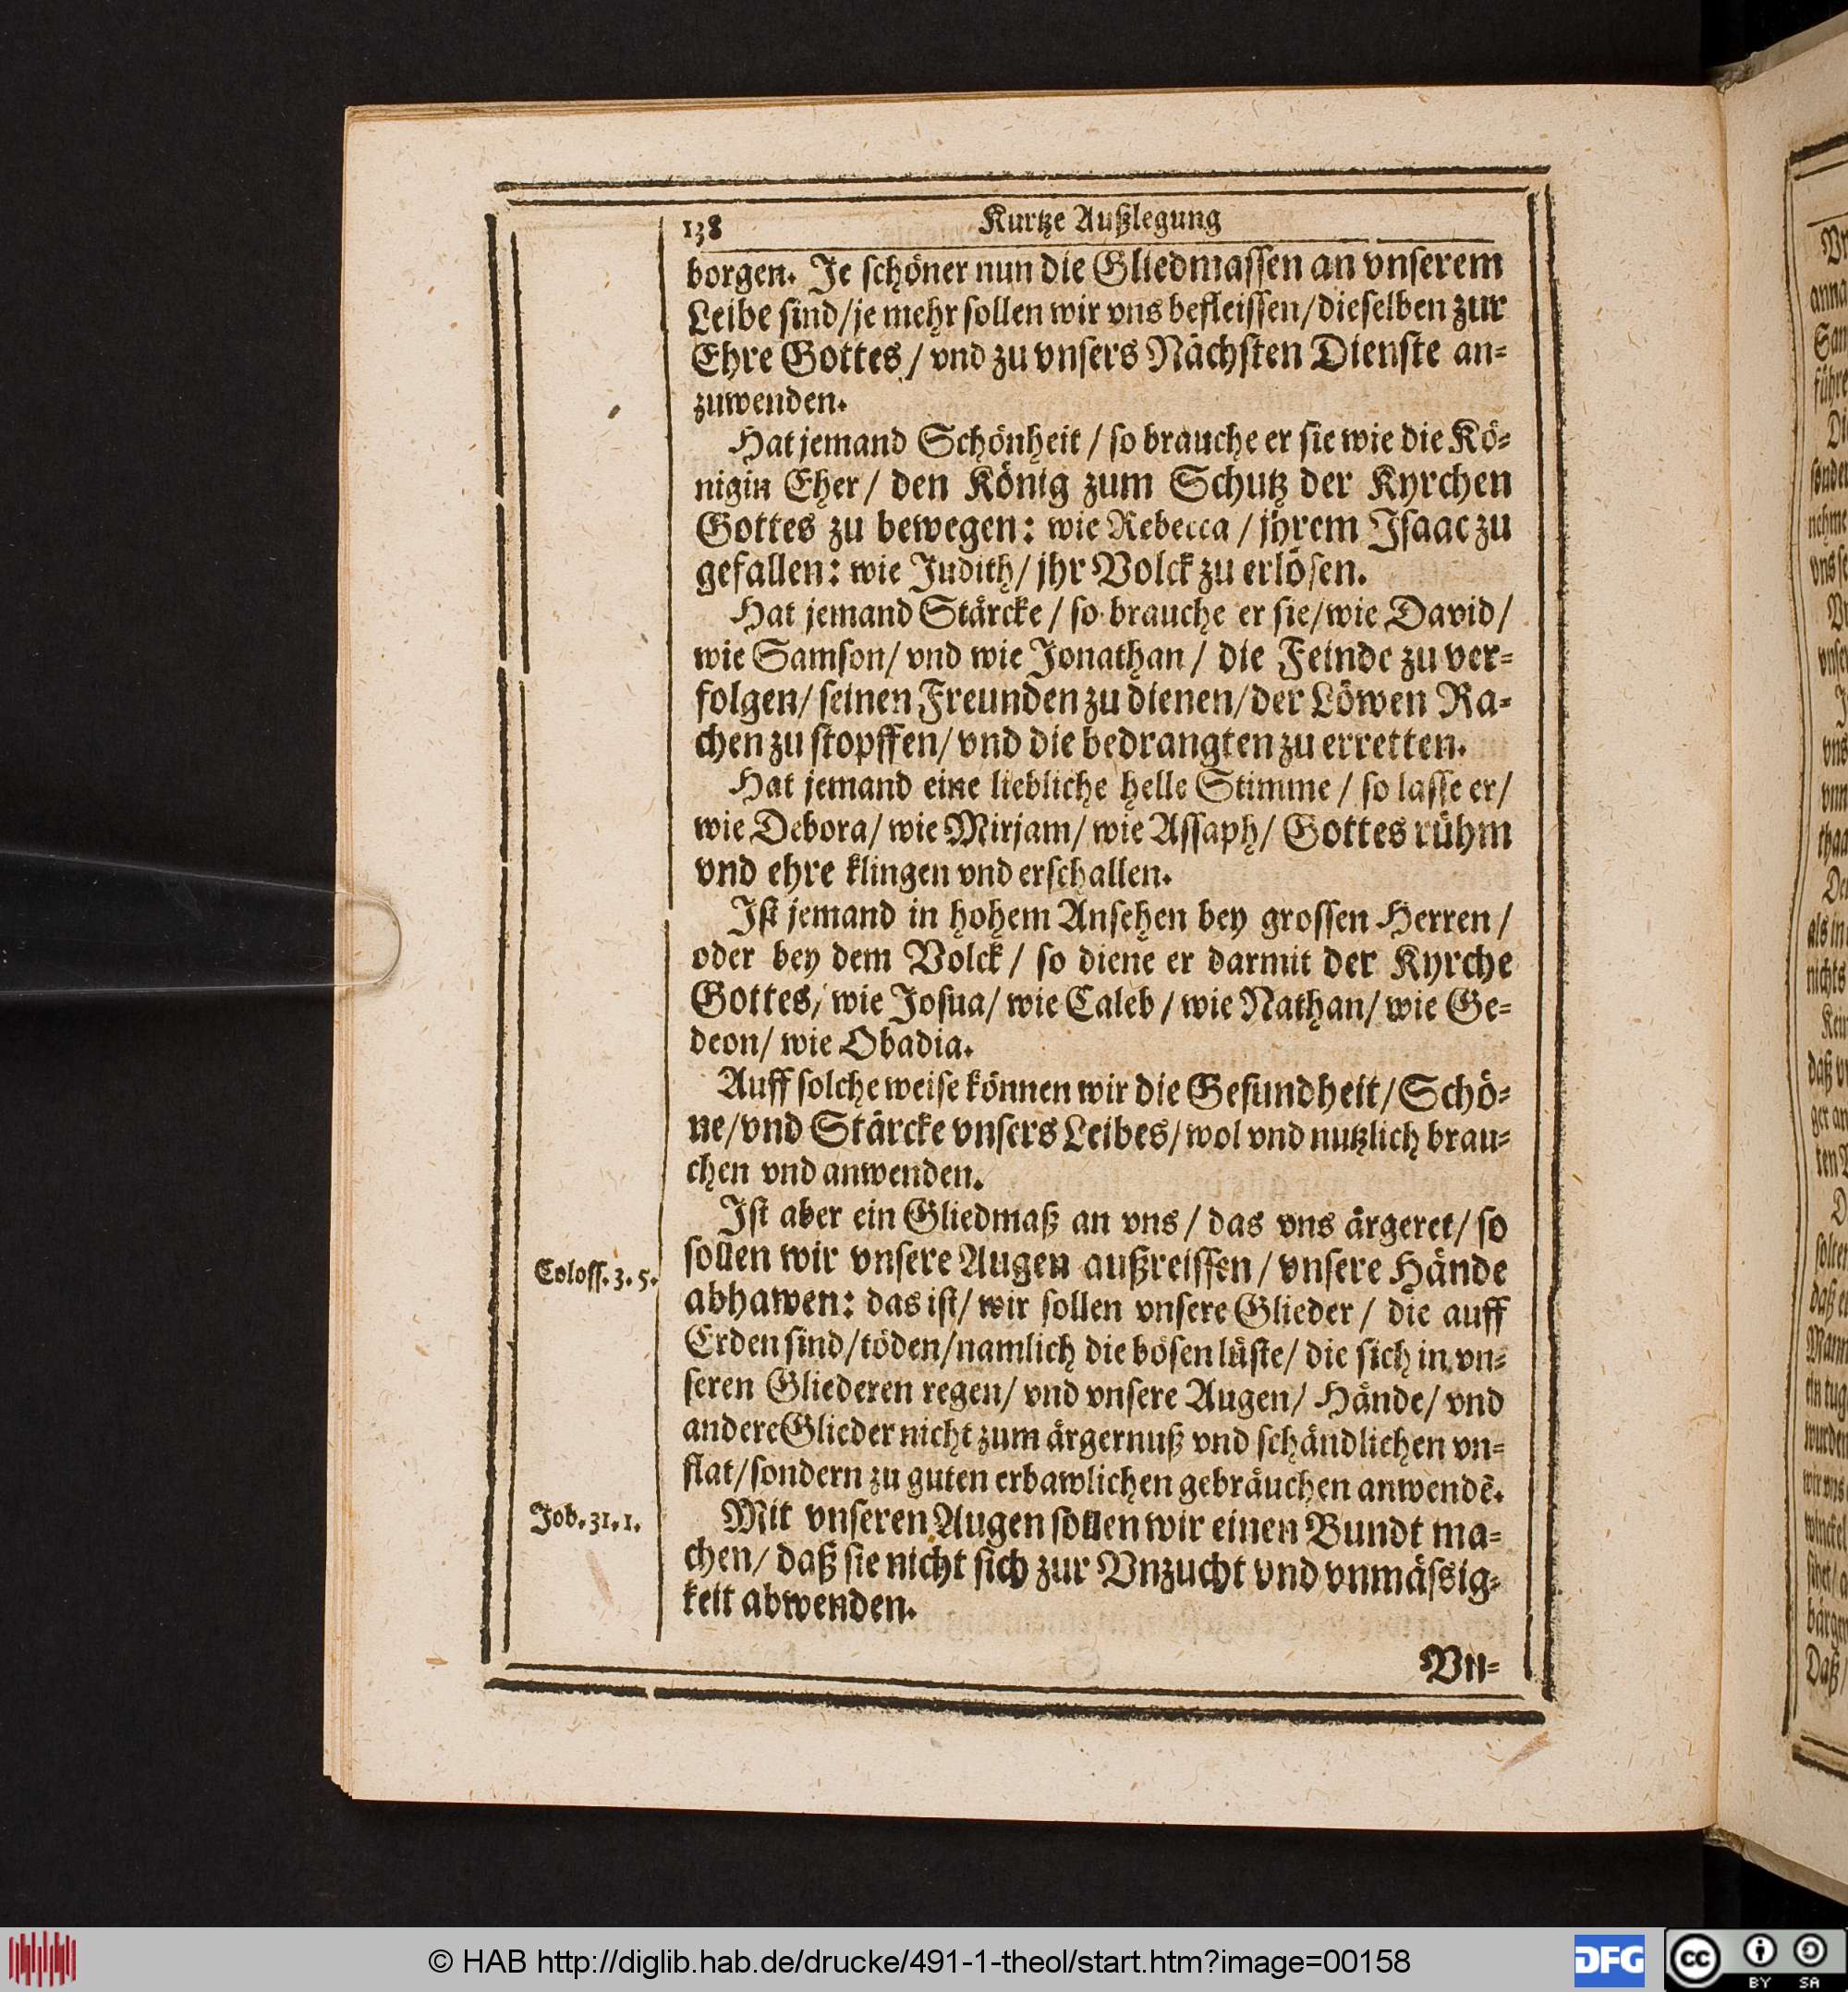 138 Kurtze Außlegung
borgen. Je schöner nun die Gliedmassen an vnserem
Leibe sind/je mehr sollen wir vns befleissen/dieselben zur
Ehre Gottes/ vnd zu vnsers Nächsten Dienste an=
zuwenden.
Hat jemand Schönheit/ so brauche er sie wie die Kö=
nigin Eher/ den König zum Schutz der Kyrchen
Gottes zu bewegen: wie Rebecca/ jhrem Isaac zu
gefallen: wie Judith/ jhr Volck zu erlösen.
Hat jemand Stärcke/ so brauche er sie/wie David/
wie Samson/ vnd wie Jonathan/ die Feinde zu ver=
folgen/ seinen Freunden zu dienen/der Löwen Ra=
chen zu stopffen/ vnd die bedrangten zu erretten.
Hat jemand eine liebliche helle Stimme/ so lasse er/
wie Debora/ wie Mirjam/ wie Assaph/ Gottes rühm
vnd ehre klingen vnd erschallen.
Ist jemand in hohem Ansehen bey grossen Herren/
oder bey dem Volck/ so diene er darmit der Kyrche
Gottes/ wie Josua/ wie Caleb/ wie Nathan/ wie Ge=
deon/ wie Obadia.
Auff solche weise können wir die Gesundheit/Schö=
ne/vnd Stärcke vnsers Leibes/ wol vnd nutzlich brau=
chen vnd anwenden.
Ist aber ein Gliedmaß an vns/ das vns ärgeret/ so
Coloss. 3. 5. sollen wir vnsere Augen außreissen/ vnsere Hände
abhawen: das ist/ wir sollen vnsere Glieder/ die auff
Erden sind/töden/namlich die bösen lüste/ die sich in vn=
seren Gliederen regen/ vnd vnsere Augen/ Hände/ vnd
andere Glieder nicht zum ärgernuß vnd schändlichen vn=
flat/sondern zu guten erbawlichen gebräuchen anwendẽ.
Job. 31. 1. Mit vnseren Augen sollen wir einen Bundt ma=
chen/ daß sie nicht sich zur Vnzucht vnd vnmässig=
keit abwenden.
Vn=
© HAB http://diglib.hab.de/drucke/491-1-theol/start.htm?image=00158
DFG
cc BY SA